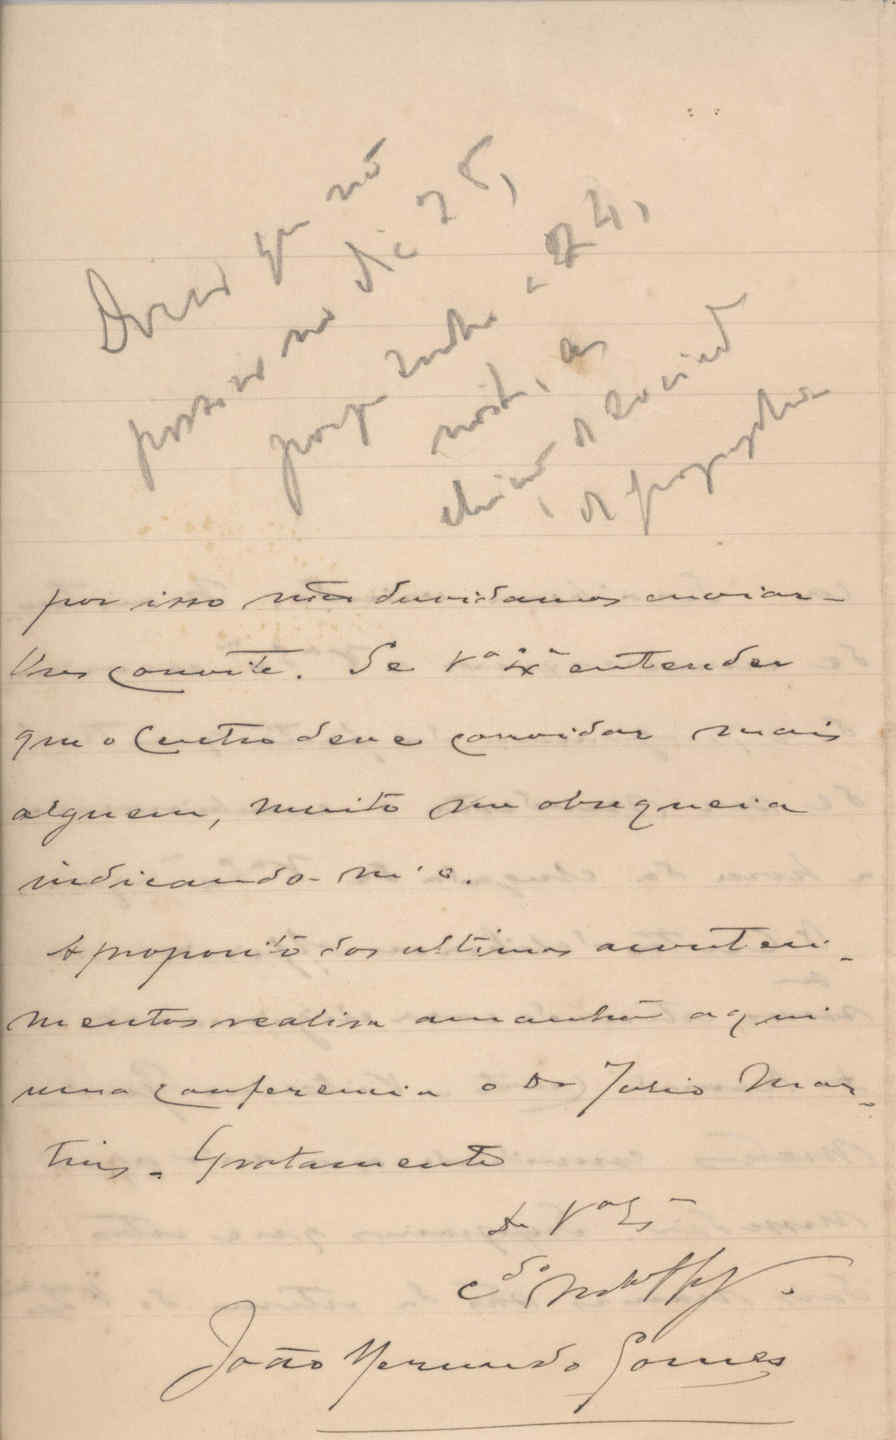 que não
posso no dia 25,
porque tenho a 24,
noite, as
eleições da Sociedade
de propaganda
por isso não duvidamos enviar-
lhes convite. Se Vª Exª entender
que o Centro deve convidar mais
alguem, muito me obsequeia
indicando-m'o.
A proposito dos ultimos aconteci-
mentos realisa amanhã aqui
uma conferencia o Dr Julio Mar-
tins. Gratamente
De Vª Exª
João Gomes